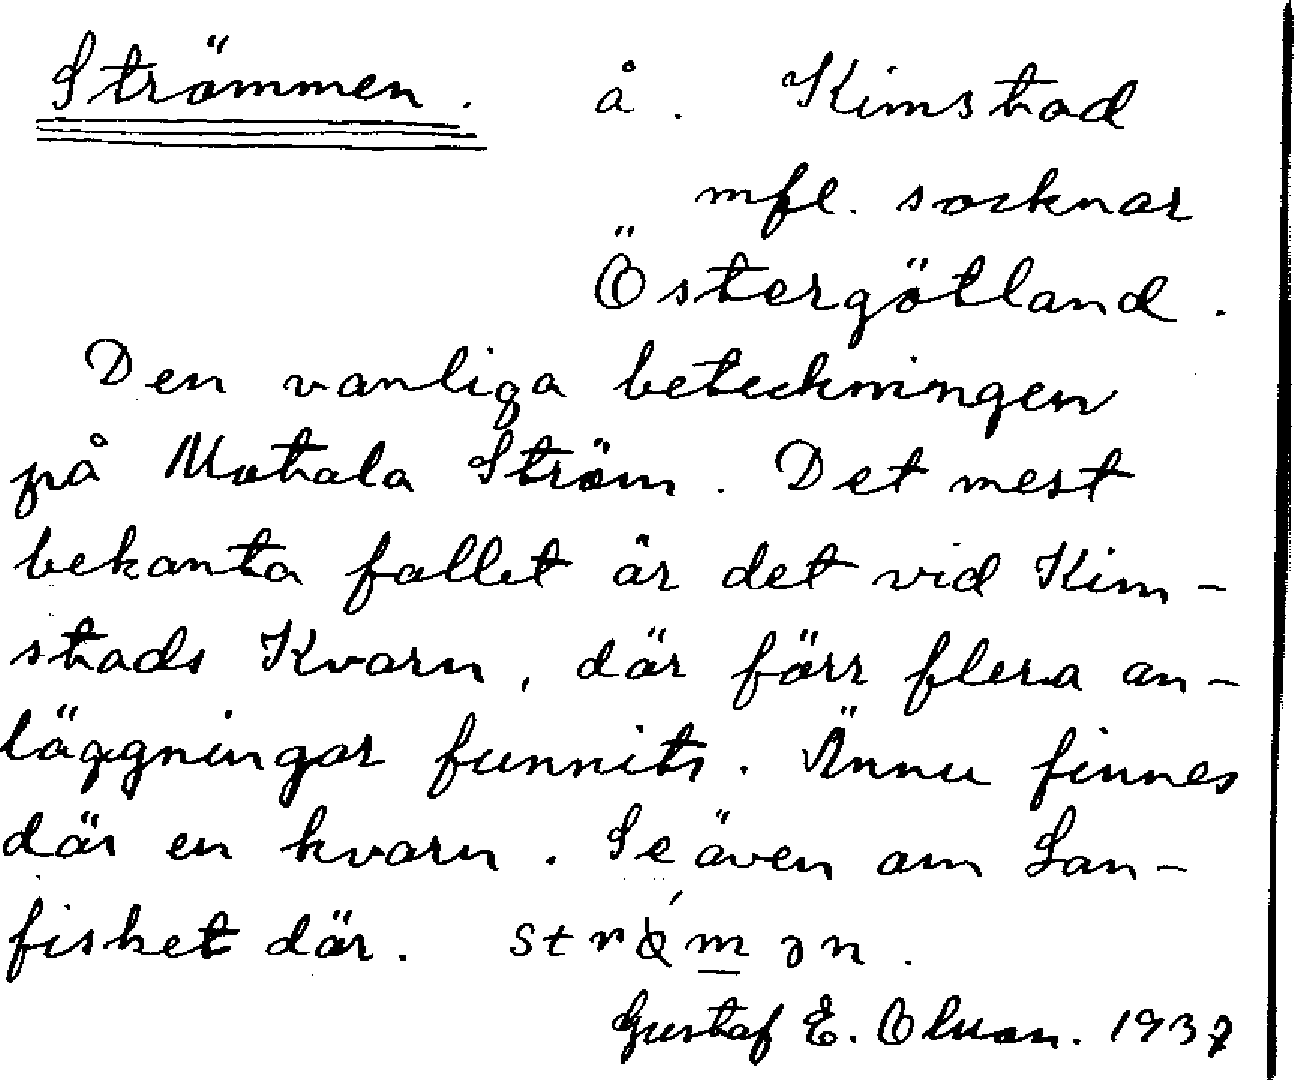 Strömmen. å. Kimstad
mfl. socknar
Östergötland.
Den vanliga beteckningen
på Motala Ström. Det mest
bekanta fallet är det vid Kim-
stads Kvarn, där förr flera an-
läggningar funnits. Ännu finnes
där en kvarn. Se även om Lax-
fisket där.
Gustaf E. Olsson. 1937